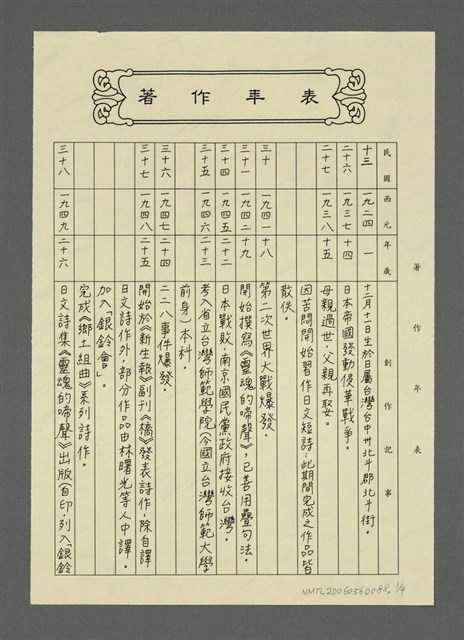 著作年表
著作年表
民國 西元 年歲 創作記事
十三 一九二四 一 十二月十一日生於日屬台灣台中州北斗郡北斗街。
二十六 一九三七 十四 日本帝國發動侵華戰爭。
二十七 一九三八 十五 母親過世，父親再娶。
因苦悶開始習作日文短詩，此期間完成之作品皆
散佚。
三十 一九四一 十八 第二次世界大戰爆發。
三十一 一九四二 十九 開始撰寫《靈魂的啼聲》，已善用疊句法。
三十四 一九四五 二十二 日本戰敗，南京國民黨政府接收台灣。
三十五 一九四六 二十三 考入省立台灣師範學院（今國立台灣師範大學
前身）本科。
三十六 一九四七 二十四 二二八事件爆發。
三十七 一九四八 二十五 開始於《新生報》副刊《橋》發表詩作，除自譯
日文詩作外，部分作品由林曙光等人中譯。
加入「銀鈴會」。
完成《鄉土組曲》系列詩作。
三十八 一九四九 二十六 日文詩集《靈魂的啼聲》出版（自印，列入「銀鈴
NMTL20060560088. 1/9